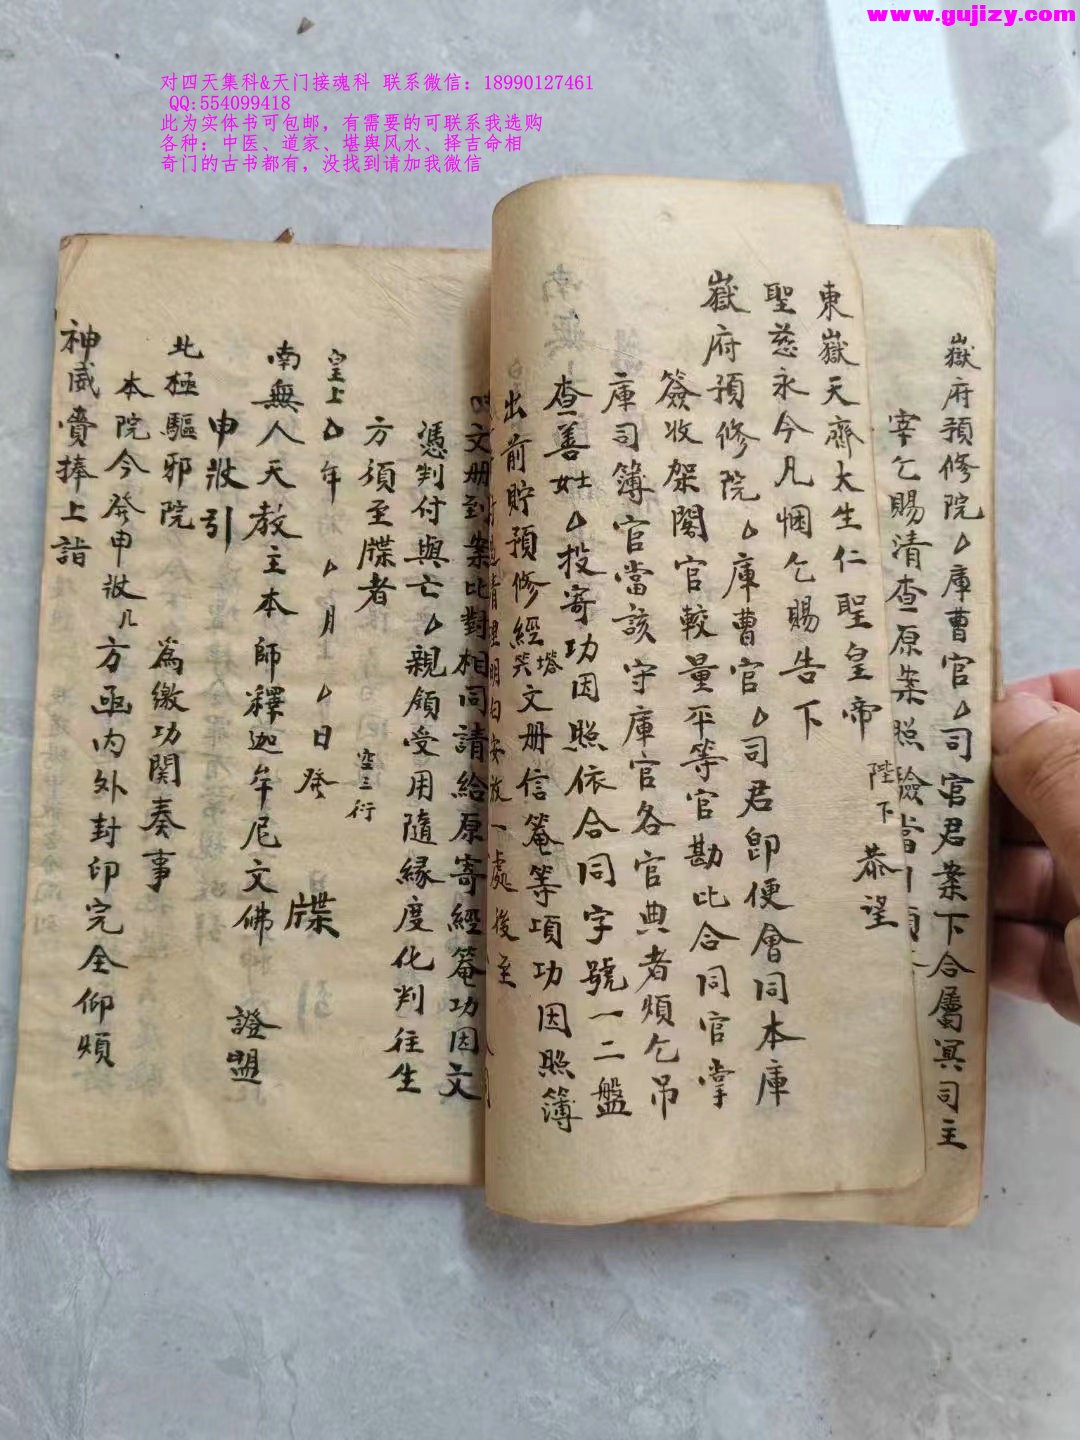 www.gujizy.com
对四天集科&天门接魂科 联系微信：18990127461
QQ:554099418
此为实体书可包邮，有需要的可联系我选购
各种：中医、道家、堪舆风水、择吉命相
奇门的古书都有，没找到请加我微信
嶽府預修院△庫曹官△司官君案下合屬冥司主
宰乞賜清查原案照驗當
東嶽天齊大生仁聖皇帝 陛下恭望
聖慈永今凡悃乞賜告下
嶽府預修院△庫曹官△司君即便會同本庫
簽收架閣官較量平等官勘比合同官掌
庫司簿官當該守庫官各官典者煩乞吊
查善士女△投寄功因照依合同字號一二盤
出前貯預修經塔文册信菴等項功因照簿
明白安放一處後至
文册到案比對相同請給原寄經菴功因文
憑判付與亡△親領受用隨緣度化判往生
方須至牒者
空三行
皇上△年△月△日發 牒
南無人天教主本師釋迦牟尼文佛 證盟
申狀引
北極驅邪院 爲繳功関奏事
本院今發申狀几方函内外封印完全仰煩
神威賫捧上詣